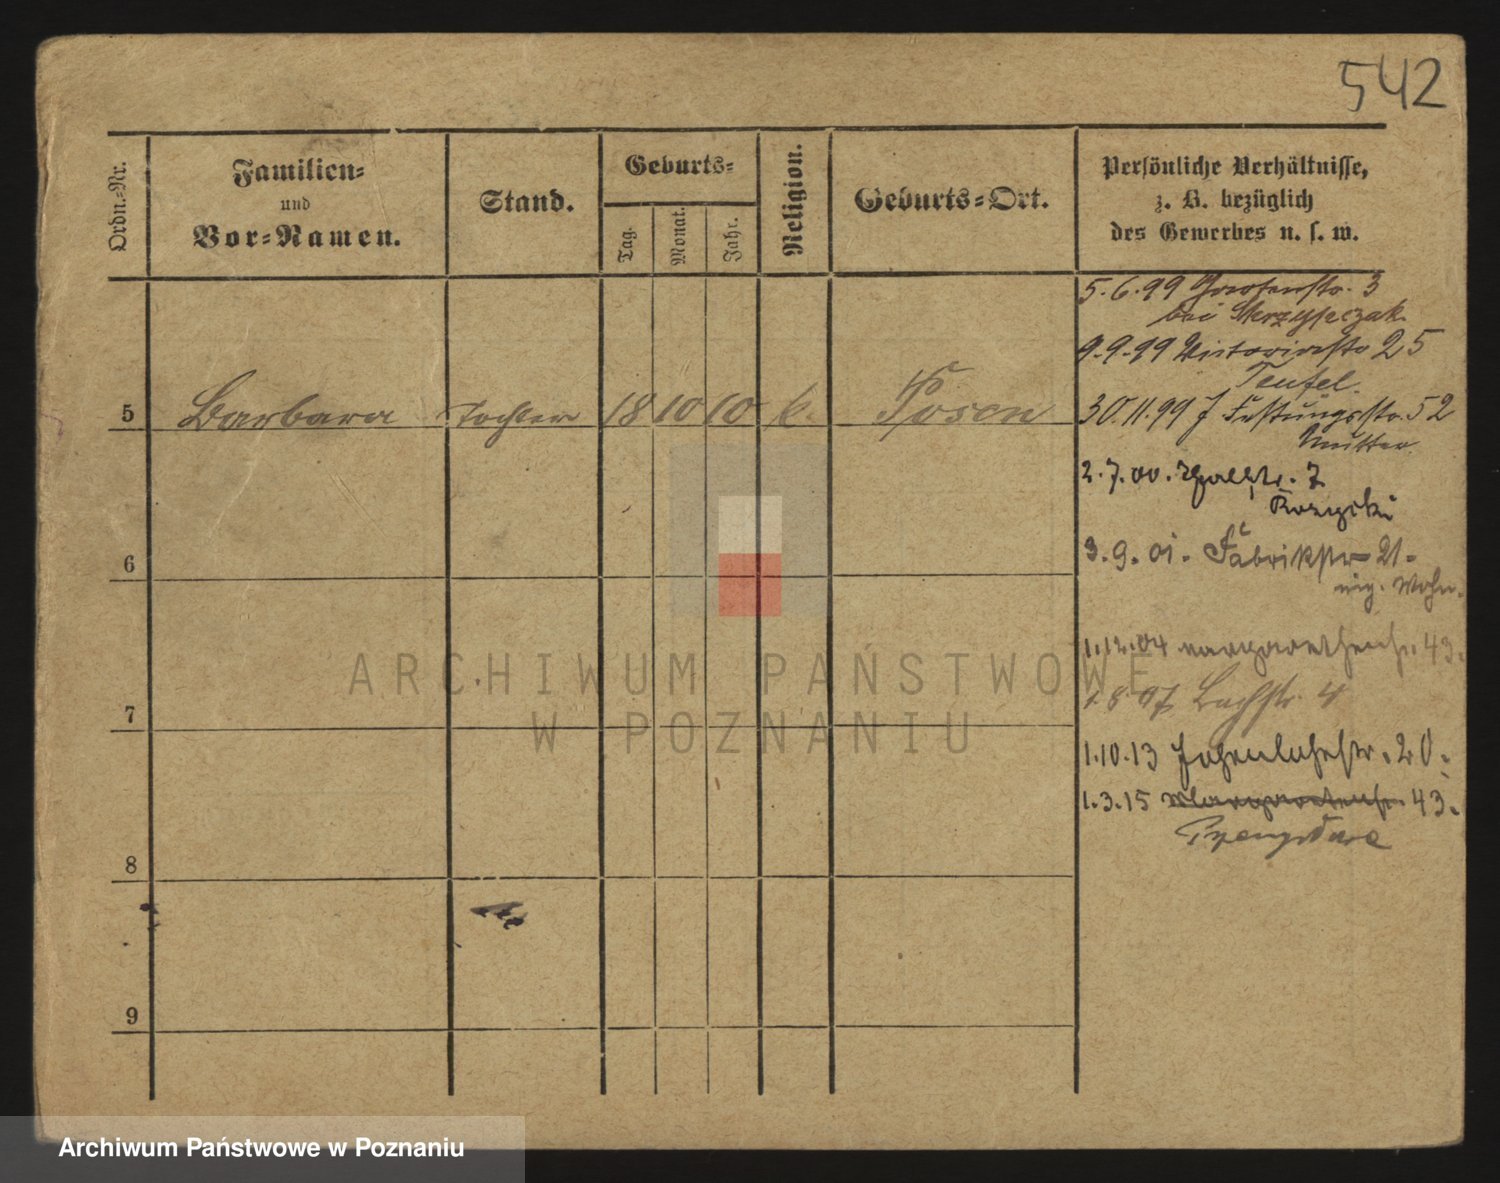 542
Ordn.-Nr.
Familien-
und
Vor-Namen.
Stand.
Geburts-
Tag.
Monat.
Jahr.
Religion.
Geburts-Ort.
Persönliche Verhältnisse,
z. B. bezüglich
des Gewerbes u. s. w.
5.6.99 3
bei
9.9.99 Victoriastr 25
Teufel.
5 Barbara Tochter 18 10 10 k. Posen
30.11.99 Festungsstr. 52
Mutter
2.7.00. 7
3.9.01. Fabrikstr 21.
6
1.12.04 43.
ARCHIWUM PAŃSTWOWE
W POZNANIU
7
1.8.07 Bachstr. 4
1.10.13 Hohenlohestr. 20.
1.3.15 Margaretenstr. 43.
8
9
Archiwum Państwowe w Poznaniu